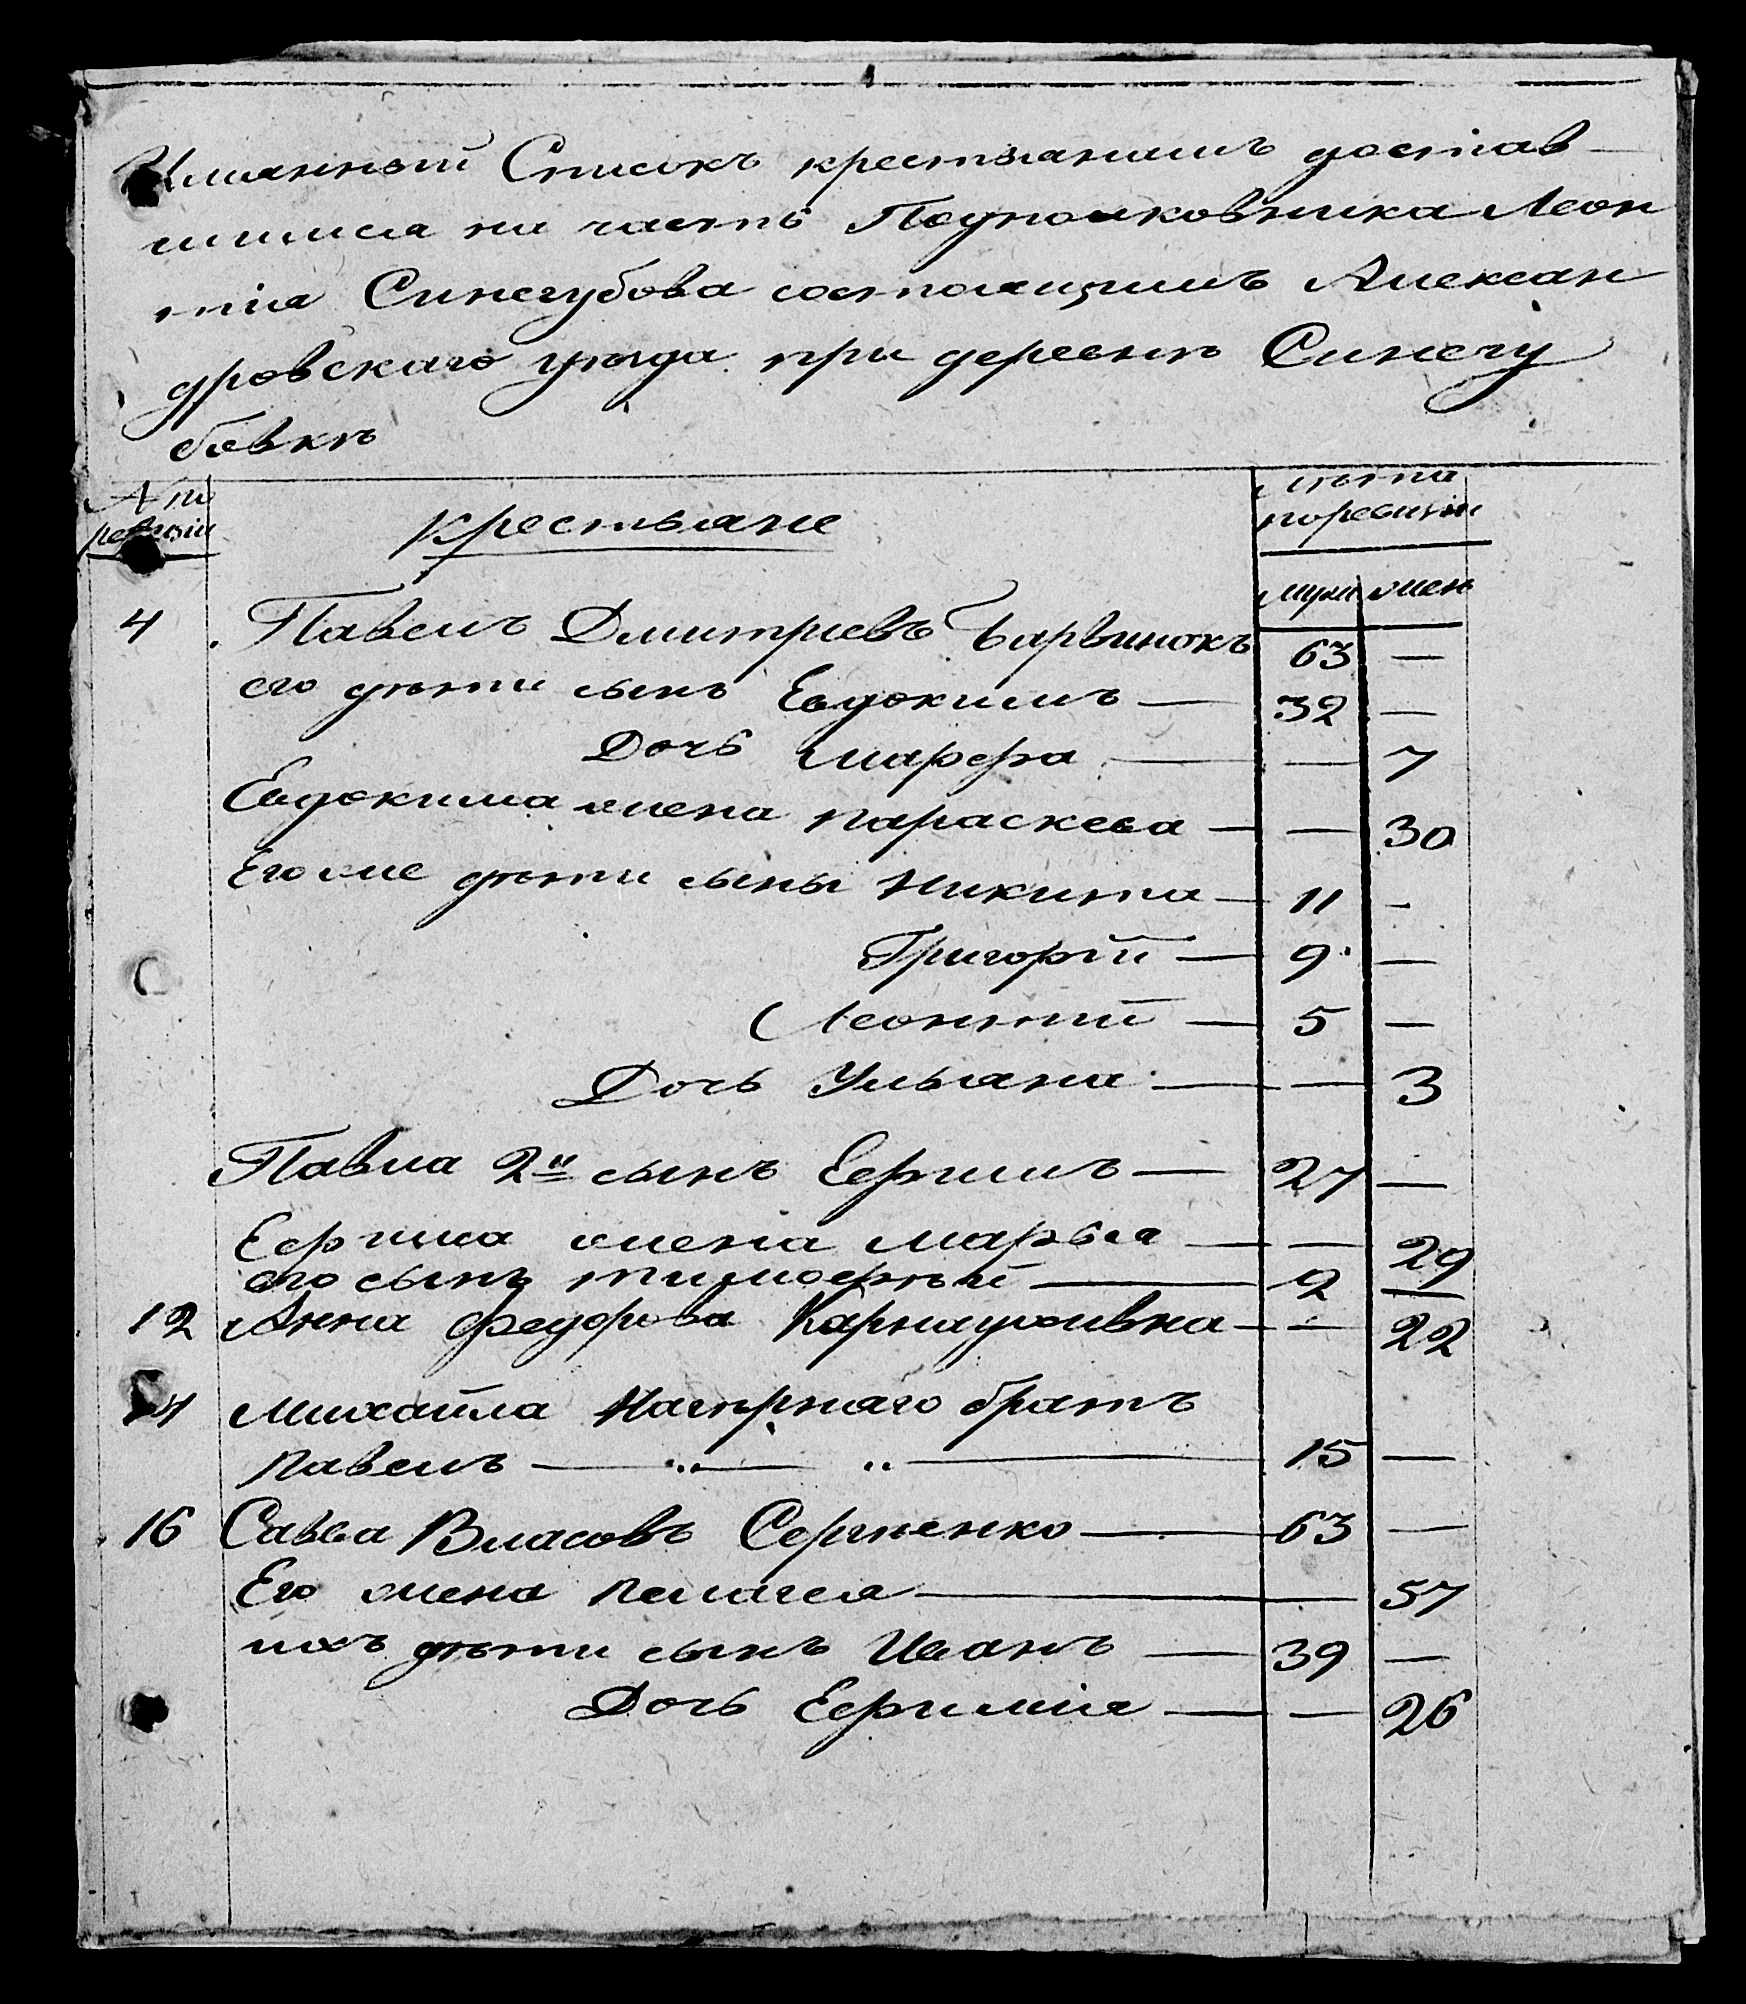 Имянный Списокъ крестьянамъ достав-
шимся на часть Подполковника Леон
тія Синегубова состоящимъ Алексан
дровскаго уѣзда при деревнѣ Синегу
бовкѣ
№ по
ревизіи
Крестьяне
лѣта
по ревизіи
муж жен
4 Павелъ Дмитріевъ Барвинокъ 63 —
его дѣти сынъ Евдокимъ — 32 —
Дочь Марфа — — 7
Евдокима жена Параскева — — 30
Его же дѣти сыны Никита — 11 -
Григорій — 9 —
Леонтий — 5 —
Дочь Ульяна — — 3
Павла 2й сынъ Ефимъ — 27 —
Ефима жена Марья — — 29
его сынъ Тимофѣй — 2 —
12 Анна Федорова — — 22
14 Михайла братъ
Павелъ — „ — „ — 15 —
16 Савва Власовъ Сергѣенко — 63 —
Его жена Пелагея — — 57
ихъ дѣти сынъ Иванъ — 39 —
Дочь Ефимія — — 26